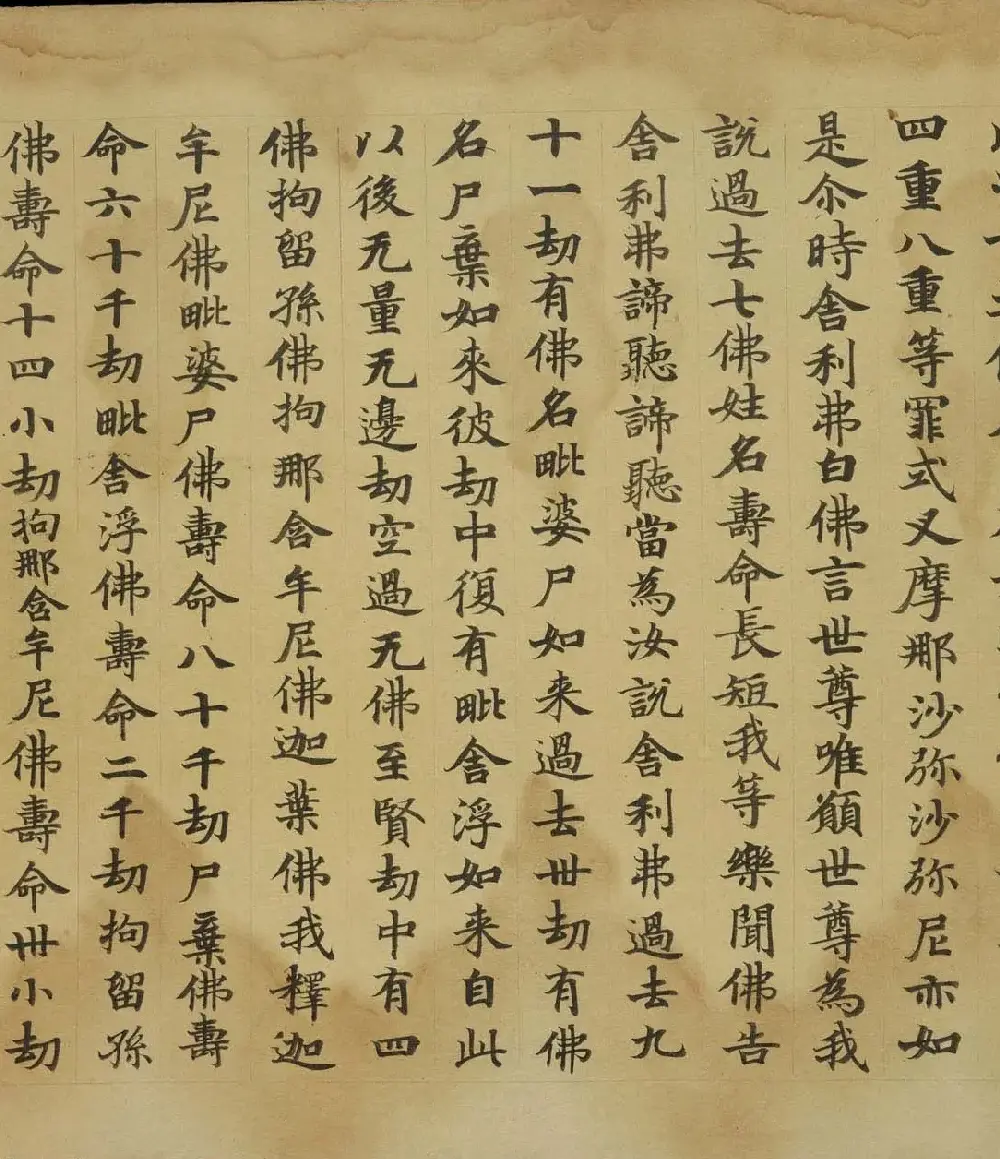 四重八重等罪式叉摩那沙弥沙弥尼亦如
是尒時舎利弗白佛言世尊唯願世尊為我
說過去七佛姓名壽命長短我等樂聞佛告
舎利弗諦聽諦聽當為汝說舎利弗過去九
十一劫有佛名毗婆尸如来過去卅劫有佛
名尸棄如來彼劫中復有毗舎浮如来自此
以後无量无邊劫空過无佛至賢劫中有四
佛拘留孫佛拘那含牟尼佛迦葉佛我釋迦
牟尼佛毗婆尸佛壽命八十千劫尸棄佛壽
命六十千劫毗舎浮佛壽命二千劫拘留孫
佛壽命十四小劫拘那含牟尼佛壽命卅小劫